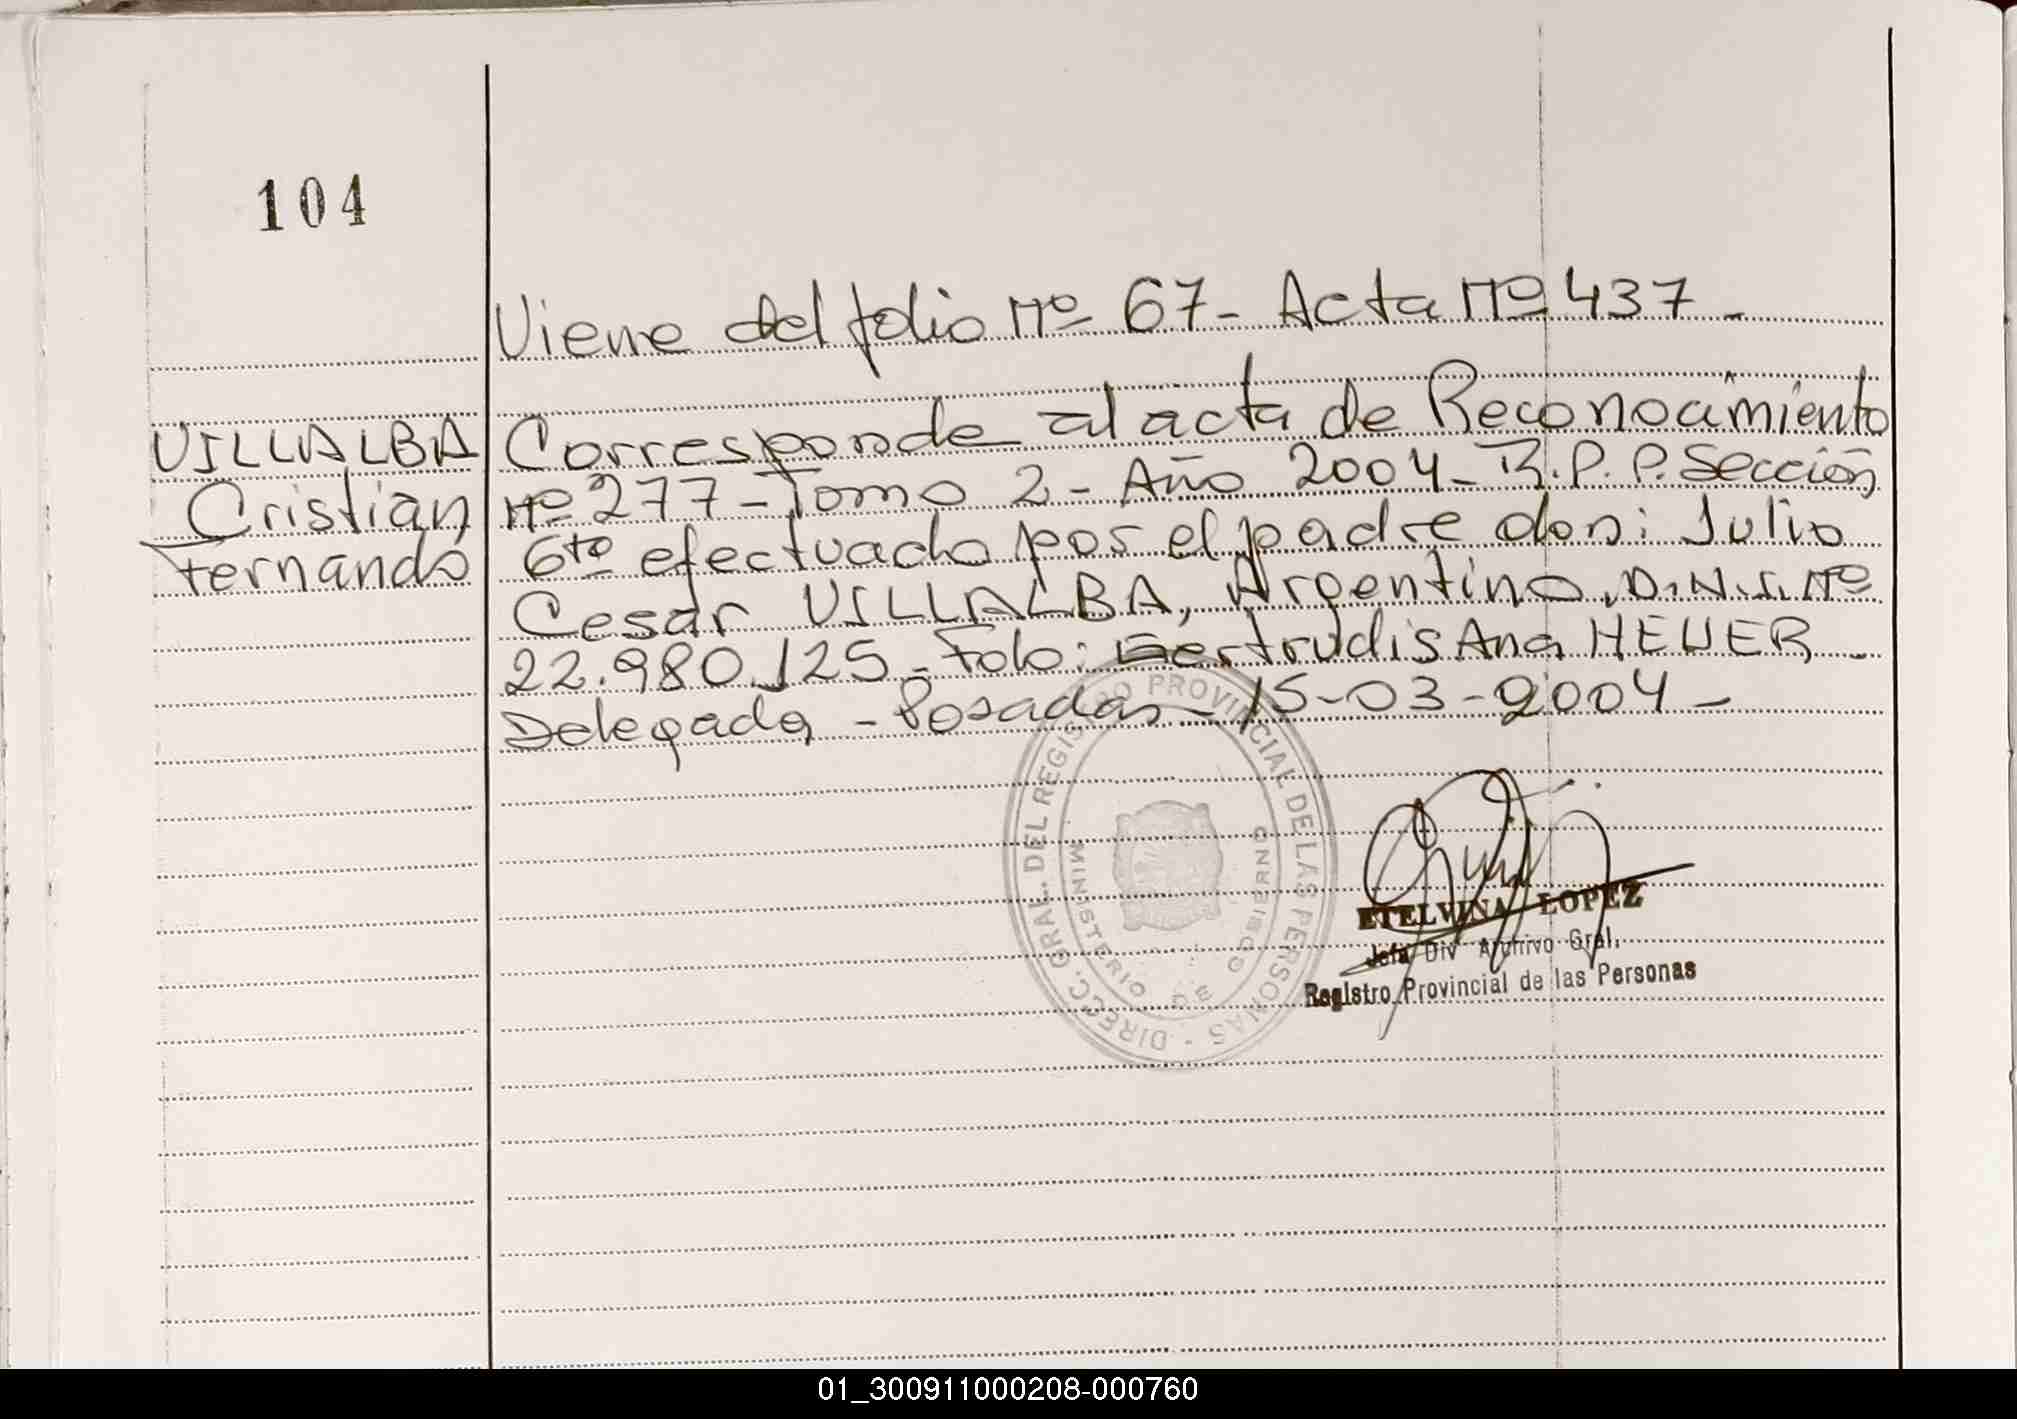 104
Viene del folio Nº 67- Acta Nº 437-
VILLALBA
Cristian
Fernando
Corresponde al acta de Reconocimiento
Nº 277-Tomo 2- Año 2004- R.P.P. Sección
6ta efectuado por el padre don: Julio
Cesar VILLALBA, Argentino, D.N.I. Nº
22.980.125- Fdo: Gertrudis Ana HEUER-
Delegada - Posadas- 15-03-2004-
DIRECC. GRAL. DEL REGISTRO PROVINCIAL DE LAS PERSONAS -
MINISTERIO DE GOBIERNO
ETELVINA LOPEZ
Jefa Div Archivo Gral.
Registro Provincial de las Personas
01_300911000208-000760